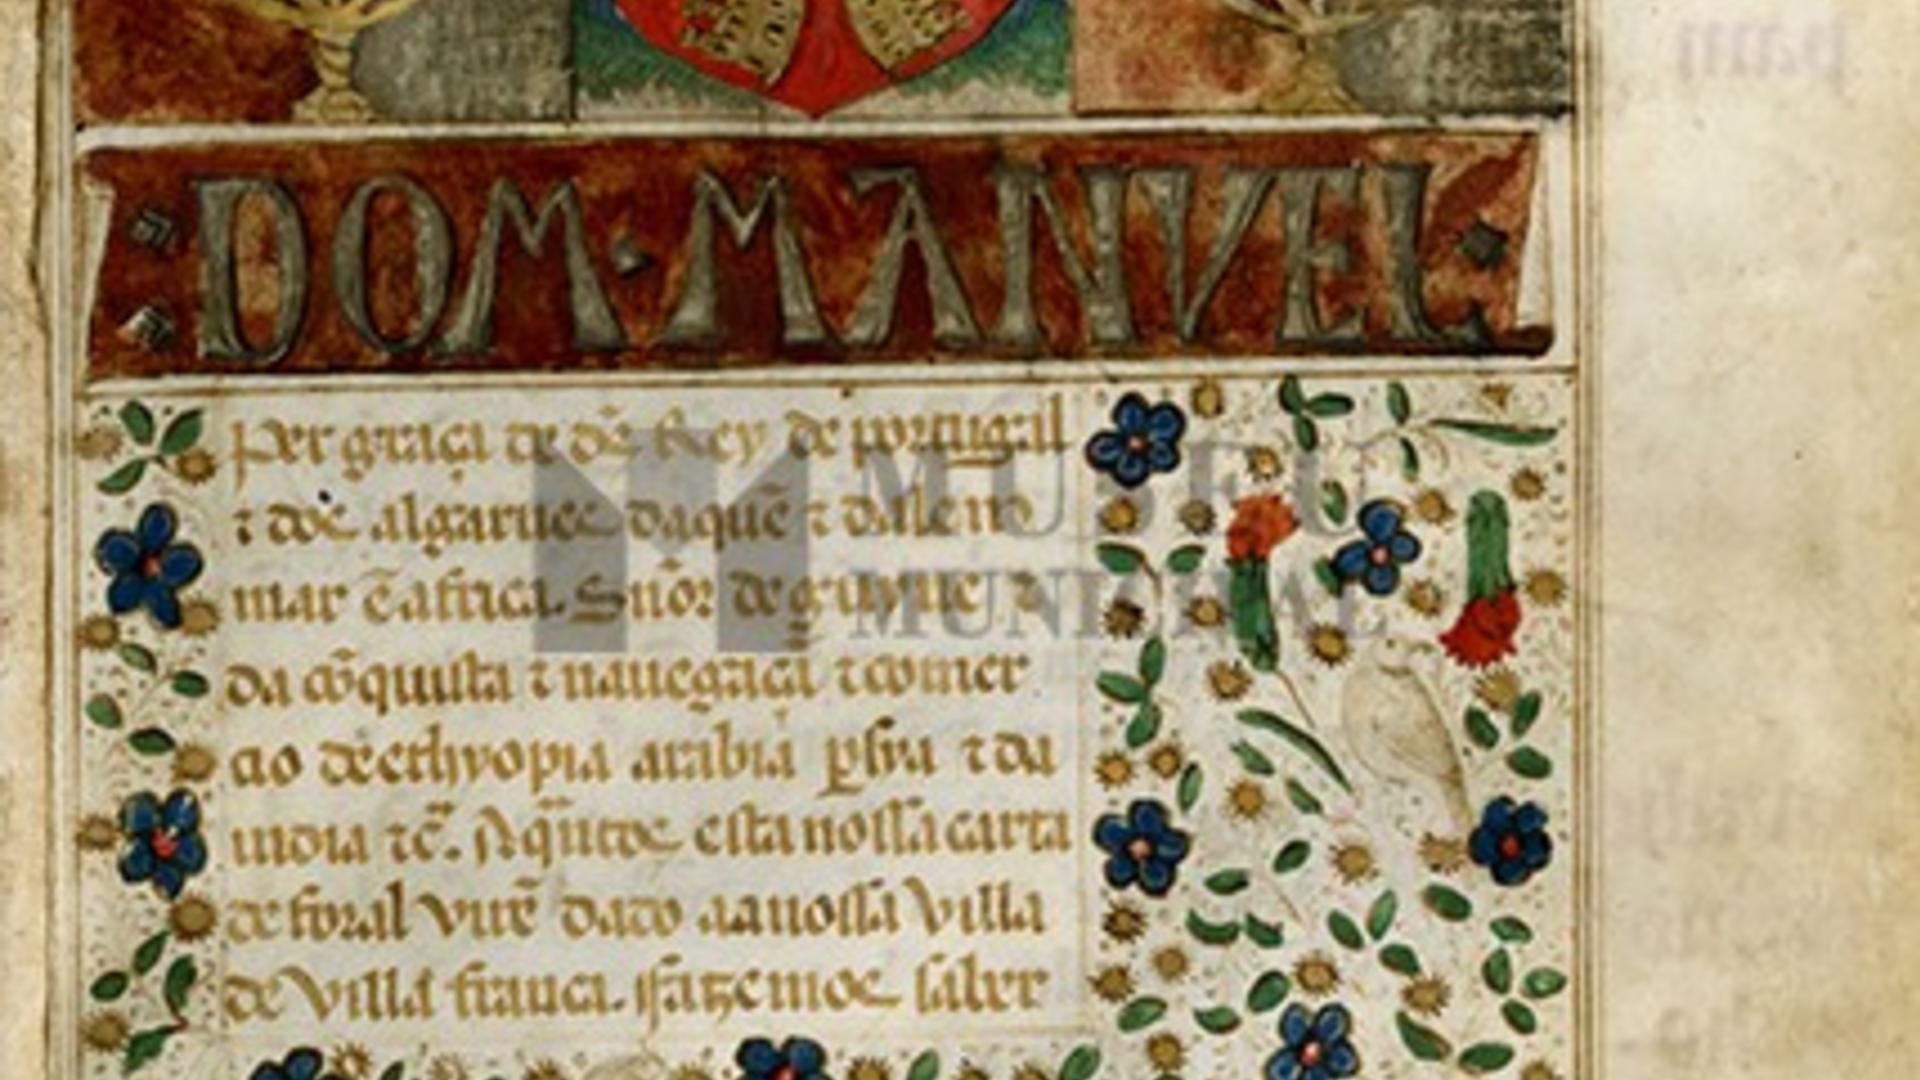 DOM·MANVEL·
per graça de d̃s Rey de portugal
⁊ dos algarues daquẽ ⁊ dalem
mar ẽ africa. Sñor de guynee ⁊
da cõquista ⁊ nauegaçã ⁊ comer
cio de ethyopia arabia ꝑsia ⁊ da
india ⁊c̃. A q̃ntos esta nossa carta
de foral virẽ dado aa nossa villa
de villa franca. ffazemos saber
MUSEU
MUNDIAL